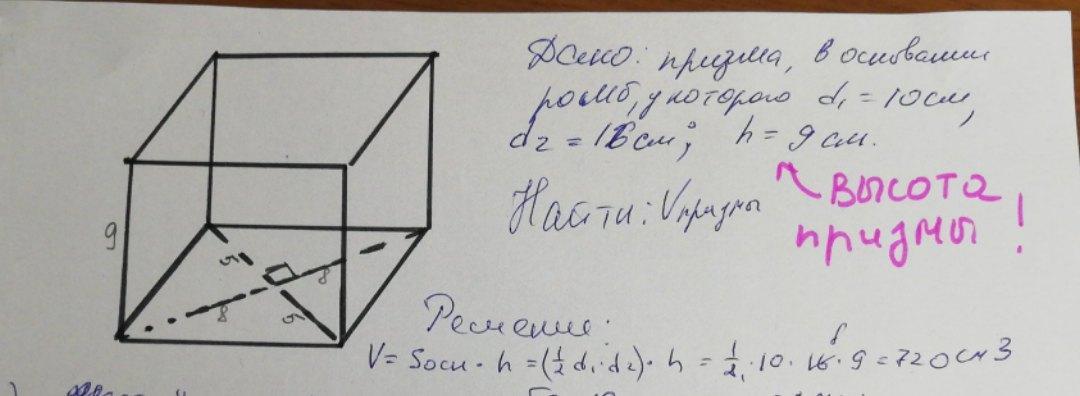 Дано: призма, в основании
ромб, у которого d₁ = 10 см,
d₂ = 16 см; h = 9 см.
Найти: Vпризмы
высота
призмы!
9
5
8
8
5
Решение:
V = Sосн · h = (1/2 d₁ · d₂) · h = 1/2 · 10 · 16 · 9 = 720 см3